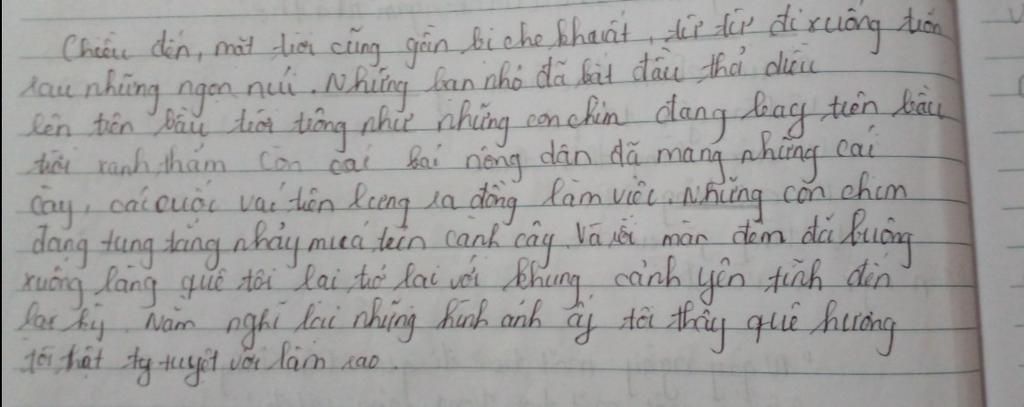 Chiều đến, mặt trời cũng gần bị che khuất, từ từ đi xuống trốn
sau những ngọn núi. Những bạn nhỏ đã bắt đầu thả diều
lên trên bầu trời trông như những con chim đang bay trên bầu
trời xanh thẳm Còn các bác nông dân đã mang những cái
cày, cái cuốc vác trên lưng ra đồng làm việc. Những con chim
đang tung tăng nhảy múa trên cành cây. Và rồi màn đêm đã buông
xuống làng quê tôi lại trở lại với khung cảnh yên tĩnh đến
lạ kỳ. Nằm nghĩ lại những hình ảnh ấy tôi thấy quê hương
tôi thật tuyệt vời làm sao.